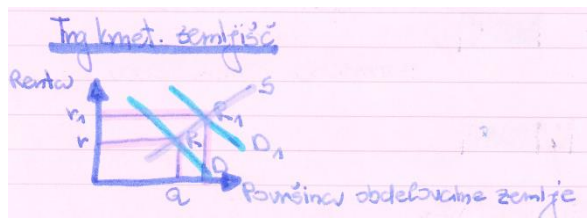 Trg kmet. zemljišč
Renta
S
r1
R1
r
R
D1
D
Q
Površina obdelovalne zemlje